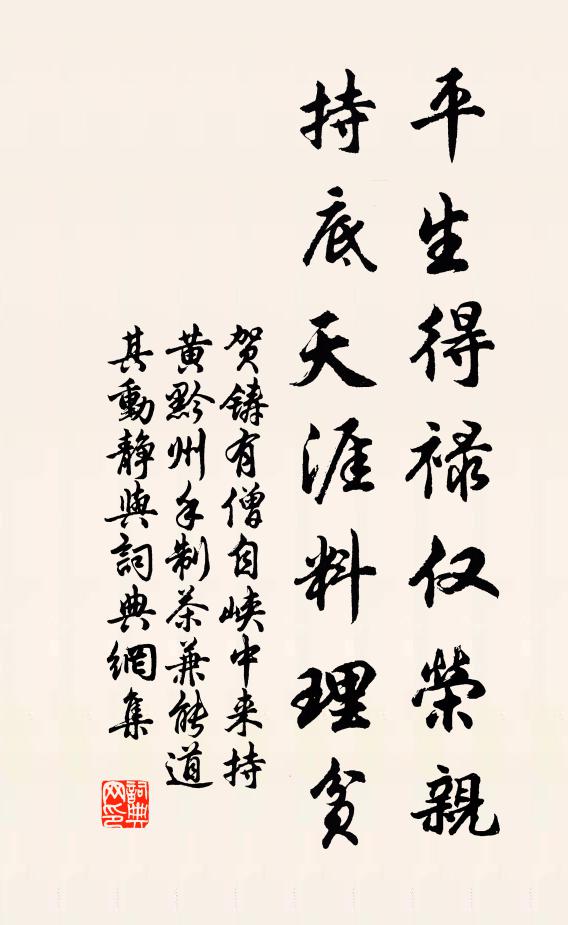 平生得禄仅榮親
持底天涯料理贫
贺鑄有僧自峡中来持
黄黔州手制茶兼能道
其動静與詞典網集
詞典
网印